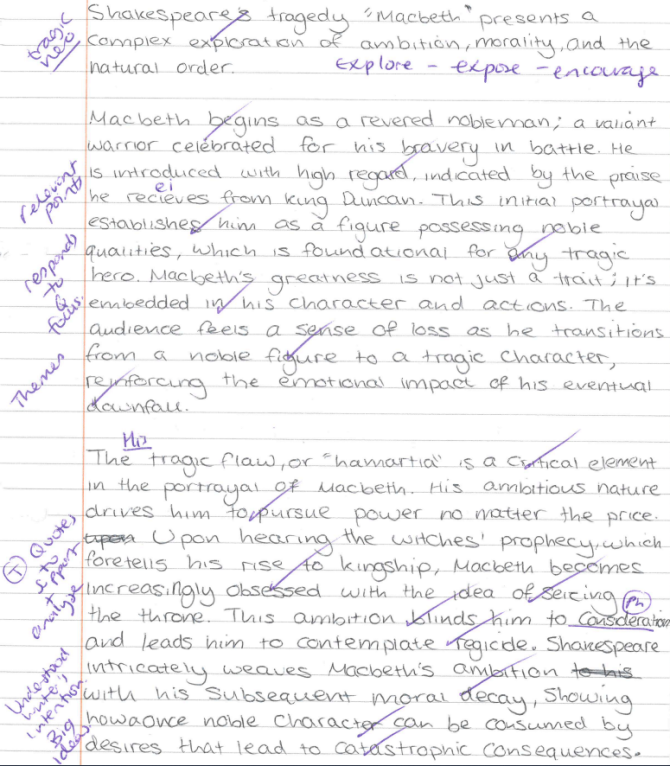 Shakespeare's tragedy "Macbeth" presents a
tragic
hero
complex exploration of ambition, morality, and the
natural order.
Explore - expose - encourage
Macbeth begins as a revered nobleman; a valiant
warrior celebrated for his bravery in battle. He
is introduced with high regard, indicated by the praise
ei
he recieves from King Duncan. This initial portrayal
relevant
points
establishes him as a figure possessing noble
qualities, which is foundational for any tragic
responds
to
Q
focus.
hero. Macbeth's greatness is not just a trait; it's
embedded in his character and actions. The
audience feels a sense of loss as he transitions
Themes
from a noble figure to a tragic character,
reinforcing the emotional impact of his eventual
downfall.
His
The tragic flaw, or "hamartia" is a critical element
in the portrayal of Macbeth. His ambitious nature
drives him to pursue power no matter the price.
upon Upon hearing the witches' prophecy, which
+ Quotes
to
support
+
analyze
foretells his rise to kingship, Macbeth becomes
increasingly obsessed with the idea of seizing
Ph
the throne. This ambition blinds him to consideration
and leads him to contemplate regicide. Shakespeare
intricately weaves Macbeth's ambition to his
Understand
intention
Big
Idea
with his subsequent moral decay, showing
how a once noble character can be consumed by
desires that lead to catastrophic consequences.